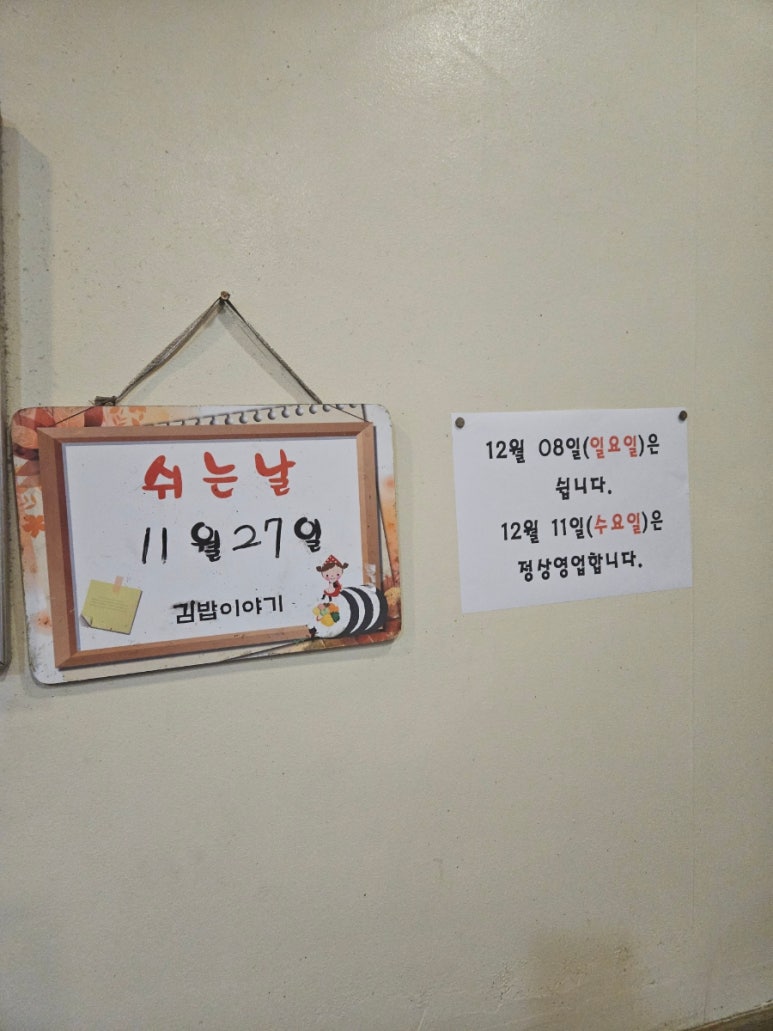 쉬는날
11월 27일
김밥이야기
12월 08일(일요일)은
쉽니다.
12월 11일(수요일)은
정상영업합니다.